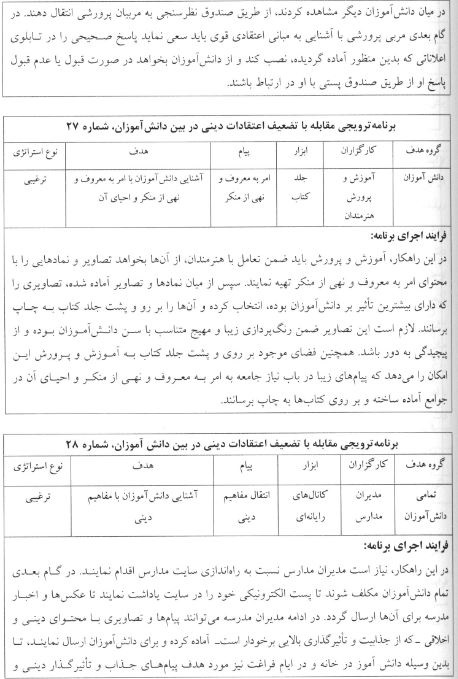 در میان دانش‌آموزان دیگر مشاهده کردند، از طریق صندوق نظرسنجی به مربیان پرورشی انتقال دهند. در
گام بعدی مربی پرورشی با آشنایی به مبانی اعتقادی قوی باید سعی نماید پاسخ صحیحی را در تابلوی
اعلاناتی که بدین منظور آماده گردیده، نصب کند و از دانش‌آموزان بخواهد در صورت قبول یا عدم قبول
پاسخ او از طریق صندوق پستی با او در ارتباط باشند.
برنامه ترویجی مقابله با تضعیف اعتقادات دینی در بین دانش‌آموزان، شماره ۲۷
گروه هدف کارگزاران ابزار پیام هدف نوع استراتژی
دانش آموزان آموزش و جلد امر به معروف و آشنایی دانش‌آموزان با امر به معروف و ترغیبی
پرورش کتاب نهی از منکر نهی از منکر و احیای آن
هنرمندان
فرایند اجرای برنامه:
در این راهکار، آموزش و پرورش باید ضمن تعامل با هنرمندان، از آن‌ها بخواهد تصاویر و نمادهایی را با
محتوای امر به معروف و نهی از منکر تهیه نمایند. سپس از میان نمادها و تصاویر آماده شده، تصاویری را
که دارای بیشترین تأثیر بر دانش‌آموزان بوده، انتخاب کرده و آن‌ها را بر رو و پشت جلد کتاب به چاپ
برسانند. لازم است این تصاویر ضمن رنگ‌پردازی زیبا و مهیج متناسب با سن دانش‌آموزان بوده و از
پیچیدگی به دور باشد. همچنین فضای موجود بر روی و پشت جلد کتاب به آموزش و پرورش این
امکان را می‌دهد که پیام‌های زیبا در باب نیاز جامعه به امر به معروف و نهی از منکر و احیای آن در
جوامع آماده ساخته و بر روی کتاب‌ها به چاپ برسانند.
برنامه ترویجی مقابله با تضعیف اعتقادات دینی در بین دانش آموزان، شماره ۲۸
گروه هدف کارگزاران ابزار پیام هدف نوع استراتژی
تمامی مدیران کانال‌های انتقال مفاهیم آشنایی دانش‌آموزان با مفاهیم ترغیبی
دانش‌آموزان مدارس رایانه‌ای دینی دینی
فرایند اجرای برنامه:
در این راهکار، نیاز است مدیران مدارس نسبت به راه‌اندازی سایت مدارس اقدام نمایند. در گام بعدی
تمام دانش‌آموزان مکلف شوند تا پست الکترونیکی خود را در سایت یاداشت نمایند تا عکس‌ها و اخبار
مدرسه برای آن‌ها ارسال گردد. در ادامه مدیران مدرسه می‌توانند پیام‌ها و تصاویری با محتوای دینی و
اخلاقی ـ که از جذابیت و تأثیرگذاری بالایی برخوردار است ـ آماده کرده و برای دانش‌آموزان ارسال نمایند، تا
بدین وسیله دانش آموز در خانه و در ایام فراغت نیز مورد هدف پیام‌های جذاب و تأثیرگذار دینی و